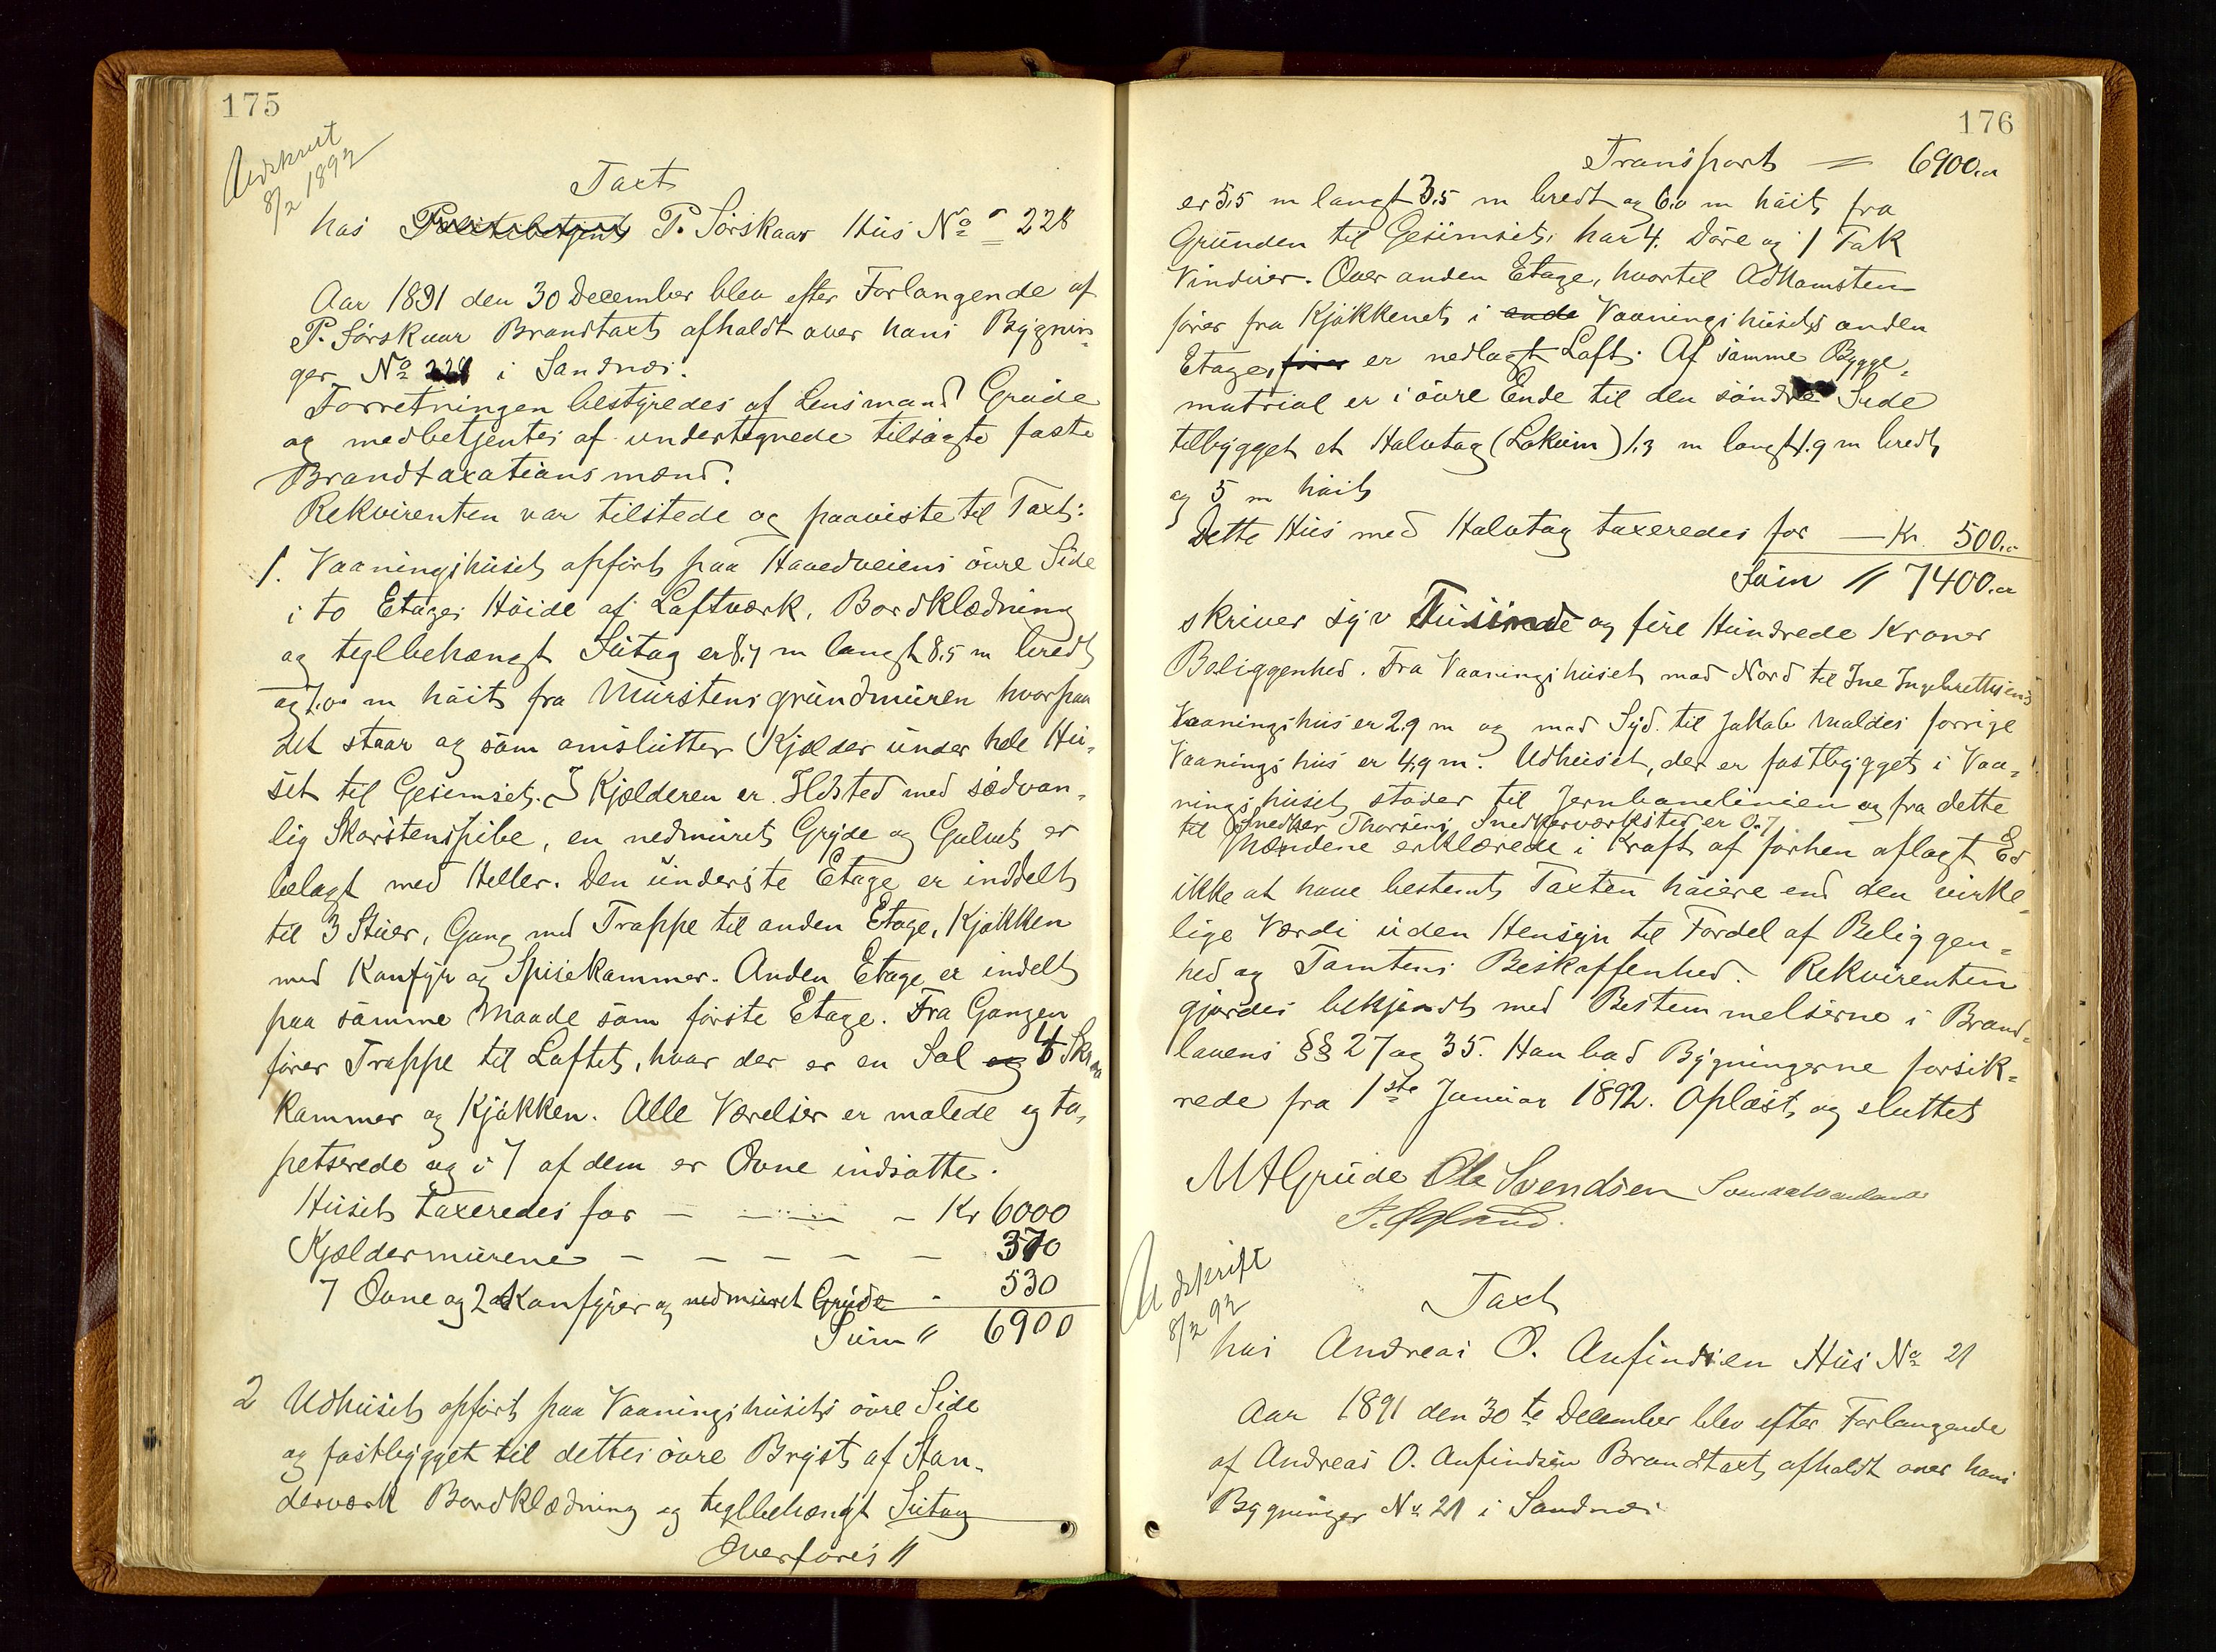 175
Udskrevet
8/2 1892
Taxt
hos Politibetjent P. Sörskaar Hus No 228
Aar 1891 den 30 December blev efter Forlangende af
P. Sörskaar Brandtaxt afholdt over hans Bygnin-
ger No 228 i Sandnæs.
Forretningen bestyredes af Lensmand Grude
og medbetjentes af undertegnede tilsagte faste
Brandtaxationsmænd.
Rekvirenten var tilstede og paaviste til Taxt:
1. Vaaningshuset opfört paa Hovedveiens övre Side
i to Etages Höide af Laftværk, Bordklædning
og teglbehængt Sutag er 8,7 m langt 8,5 m bredt
og 7,0 m höit fra Murstensgrundmuren hvorpaa
det staar og som omslutter Kjælder under hele Hu-
set til Gesimset. I Kjælderen er Ildsted med sædvan-
lig Skorstenspibe, en nedmuret Gryde og Gulvet er
belagt med Heller. Den underste Etage er inddelt
til 3 Stuer, Gang med Trappe til anden Etage, Kjökken
med Komfyr og Spisekammer. Anden Etage er indelt
paa samme Maade som förste Etage. Fra Gangen
förer Trappe til Loftet, hvor der er en Sal og 4 Skraa
kammer og Kjökken. Alle Værelser er malede og ta-
petserede og i 7 af dem er Ovne indsatte.
Huset taxeredes for — — — Kr 6000
Kjældermurene — — — — — 370
7 Ovne og 2 Komfyrer og nedmuret Gryde - 530
Sum " 6900
2 Udhuset opfört paa Vaaningshusets övre Side
og fastbygget til dettes övre Bryst af Stan-
derværk Bordklædning og teglbehængt Sutag
Overföres "
176
Transport = 6900.00
er 5,5 m langt 3,5 m bredt og 6,0 m höit fra
Grunden til Gesimset, har 4 Döre og 1 Tak
Vinduer. Over anden Etage, hvortil Adkomsten
förer fra Kjökkenet i ande Vaaningshusets anden
Etage, förer er nedlagt Loft. Af samme Bygge-
matrial er i övre Ende til den söndre Side
tilbygget et Halvtag (Lokum) 1.3 m langt 1.9 m bredt
og 5 m höit
Dette Hus med Halvtag taxeredes for — Kr. 500.00
Sum " 7400.00
skriver syv Tusinde og fire Hundrede Kroner
Beliggenhed. Fra Vaaningshuset mod Nord til Ine Ingebrethsens
Vaaningshus er 2,9 m og mod Syd til Jakob Maldes forrige
Vaaningshus er 4,9 m. Udhuset, der er fastbygget i Vaa-
ningshuset stöder til Jernbanelinien og fra dette
til Snedker Thorsens Snedkerværksted er 0.7
Mændene erklærede i Kraft af forhen aflagt Ed
ikke at have bestemt Taxten höiere end den virke-
lige Værdi uden Hensyn til Fordel af Beliggen-
hed og Tomtens Beskaffenhed. Rekvirenten
gjordes bekjendt med Bestemmelserne i Brand-
lovens §§ 27 og 35. Han bad Bygningerne forsik-
rede fra 1ste Januar 1892. Oplæst og sluttet
MAGrude Ole Svendsen
Udskrift
8/2 92
Taxt
hos Andreas O. Aufindsen Hus No 21
Aar 1891 den 30te December blev efter Forlangende
af Andreas O. Aufindsen Brandtaxt afholdt over hans
Bygninger No 21 i Sandnæs